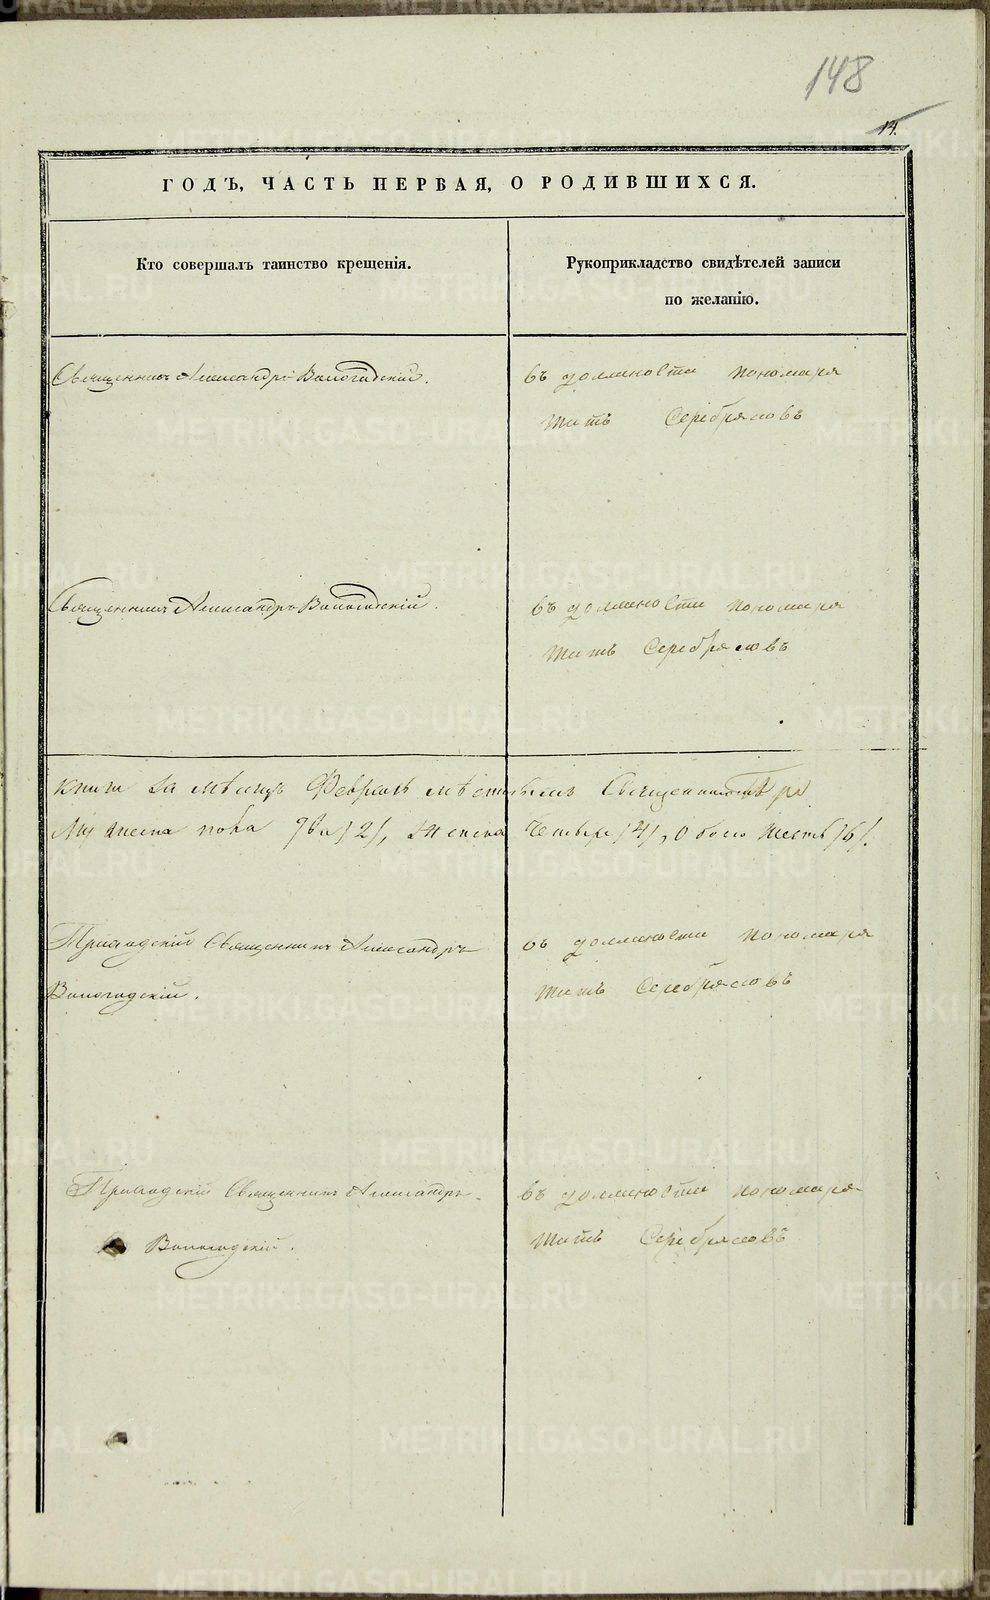 148
14.
ГОДЪ, ЧАСТЬ ПЕРВАЯ, О РОДИВШИХСЯ.
Кто совершалъ таинство крещенія.
Рукоприкладство свидѣтелей записи
по желанію.
Священникъ Александръ Вологодскій.
въ должности пономаря
Титъ Серебряковъ
Священникъ Александръ Вологодскій.
въ должности пономаря
Титъ Серебряковъ
книги за мѣсяцъ Февраль мѣстнымъ
пола два /2/, женска четыре /4/, обоего шесть /6/.
Приходскій Священникъ Александръ
Вологодскій.
въ должности пономаря
Титъ Серебряковъ
Приходскій Священникъ Александръ
Вологодскій.
въ должности пономаря
Титъ Серебряковъ
METRIKI.GASO-URAL.RU